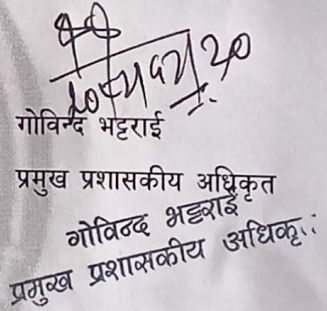 गोविन्द भट्टराई
प्रमुख प्रशासकीय अधिकृत
गोविन्द भट्टराई
प्रमुख प्रशासकीय अधिकृ